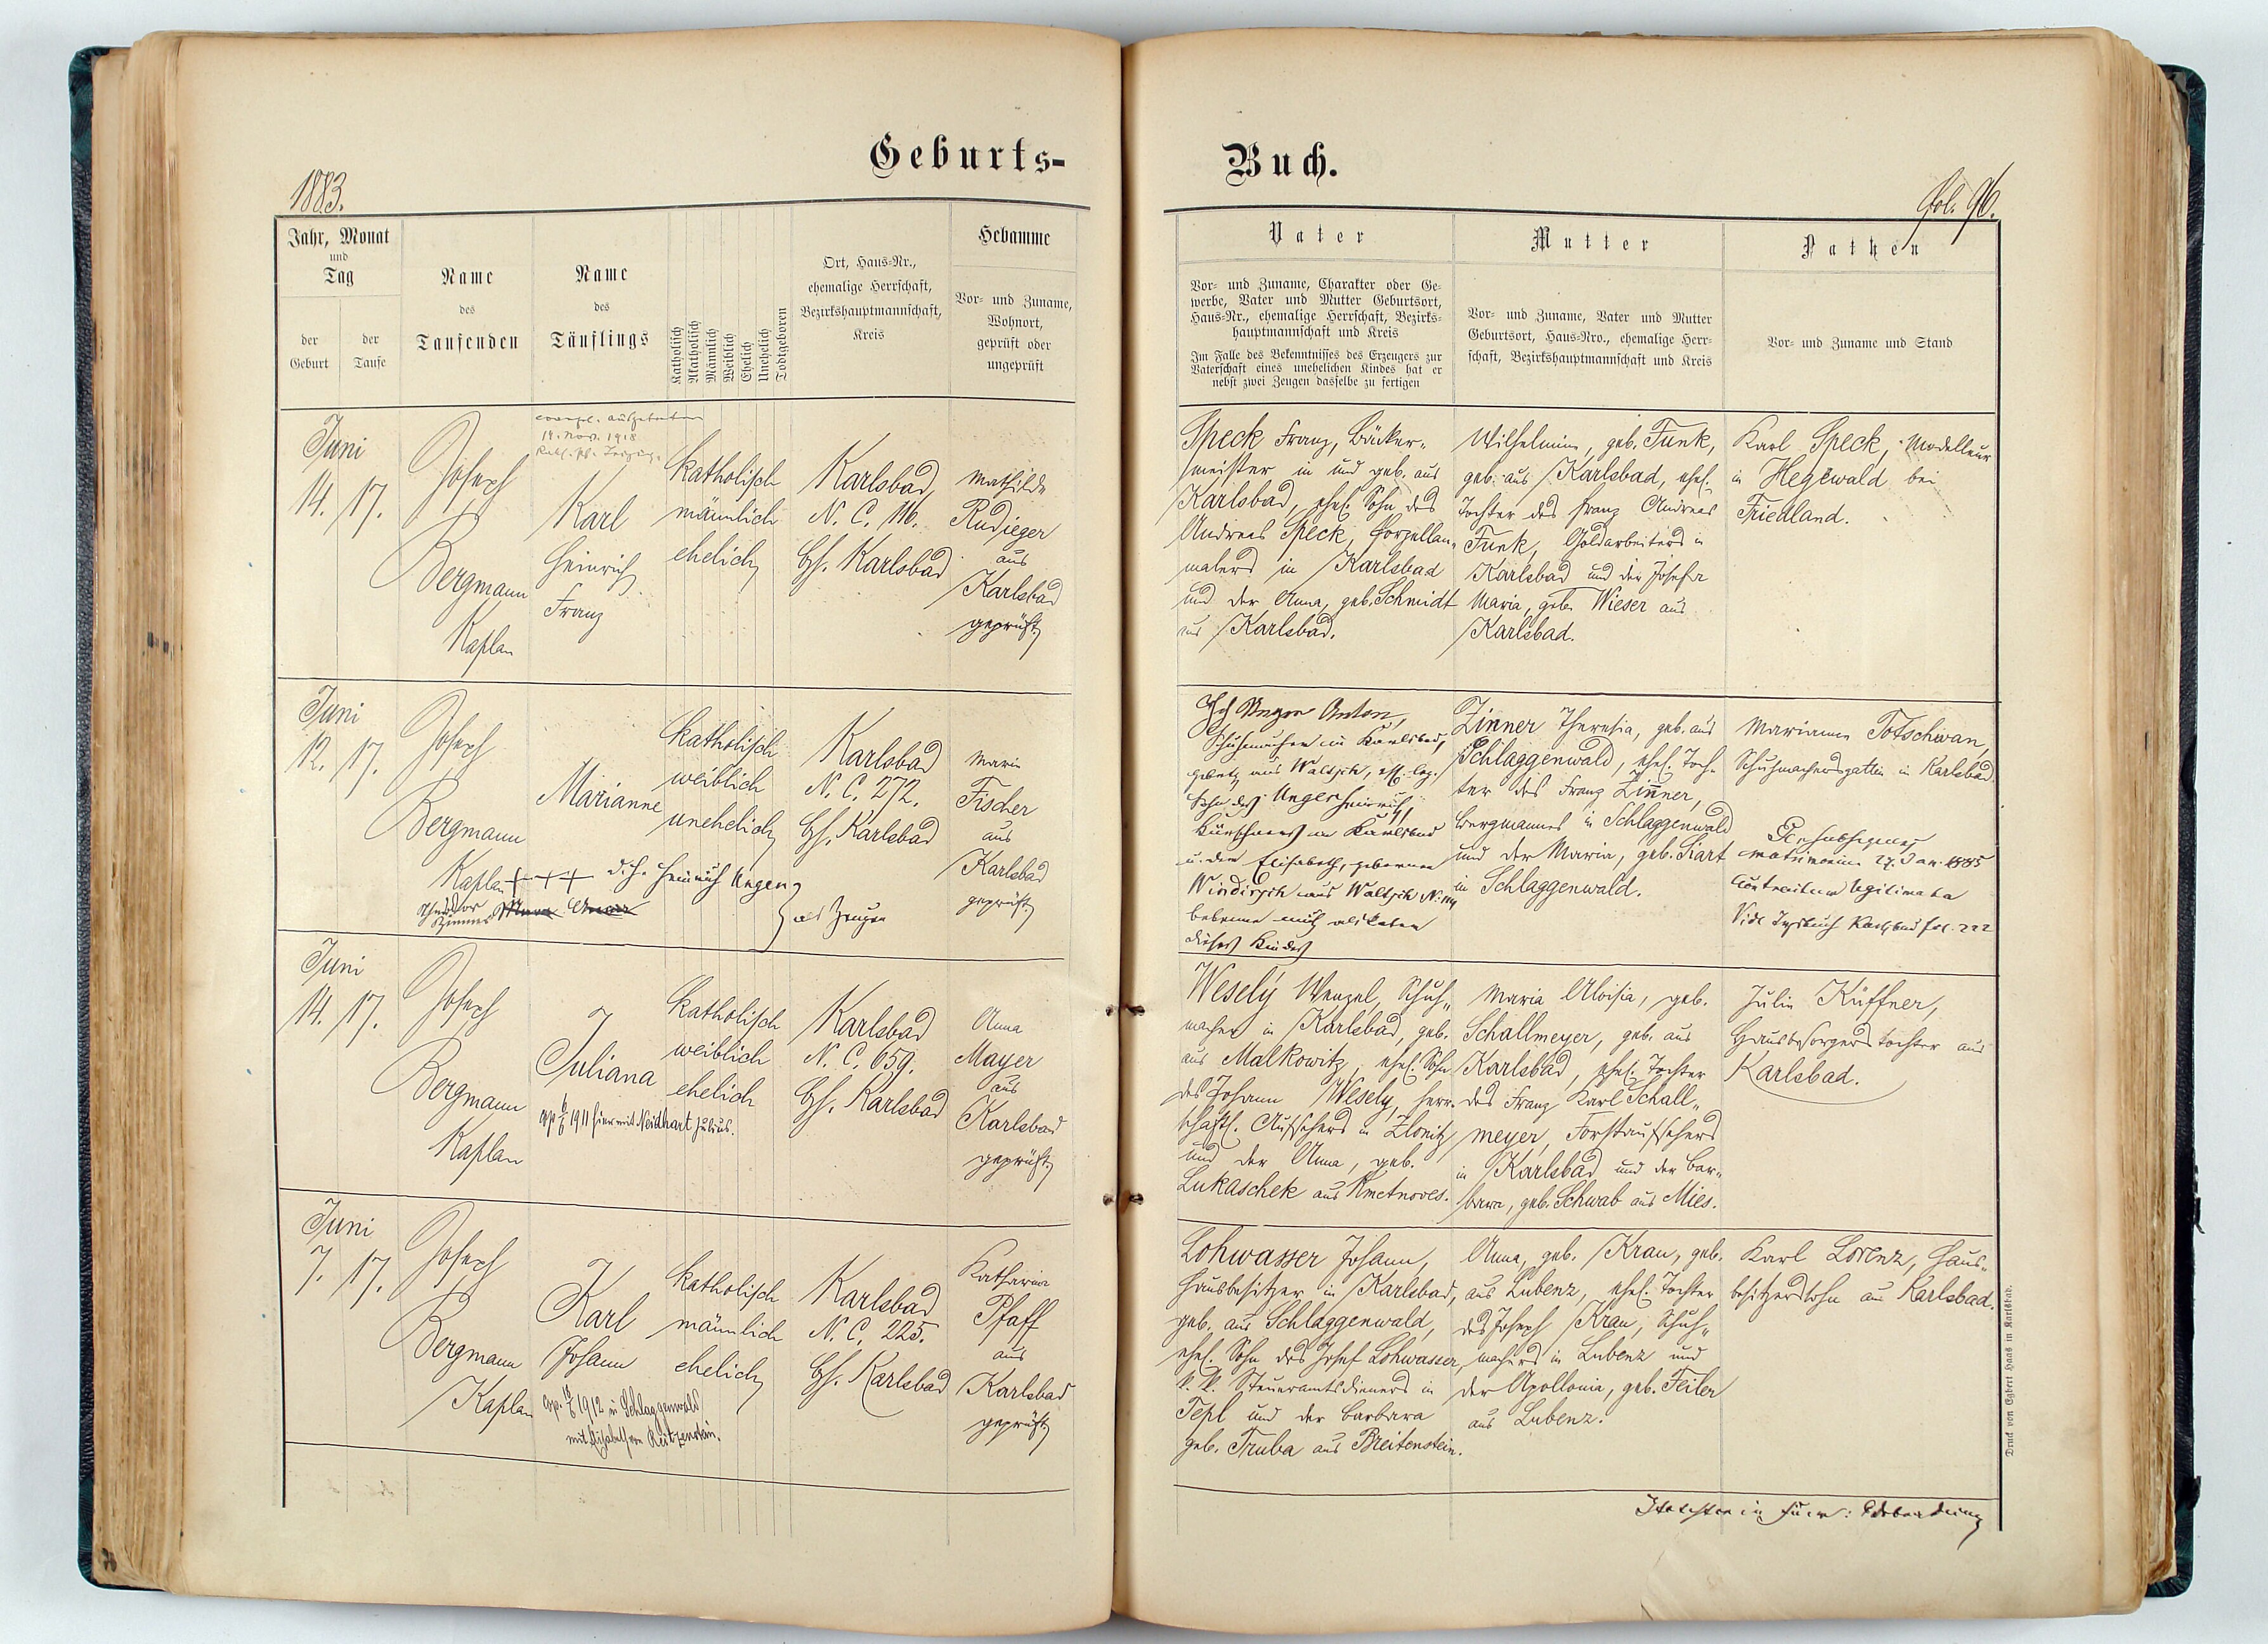 Geburts-
1883.
Jahr, Monat
und
Tag
der
Geburt
der
Taufe
Name
des
Taufenden
Name
des
Täuflings
Katholisch
Akatholisch
Männlich
Weiblich
Ehelich
Unehelich
Todtgeboren
Ort, Haus-Nr.,
ehemalige Herrschaft,
Bezirkshauptmannschaft,
Kreis
Hebamme
Vor- und Zuname,
Wohnort,
geprüft oder
ungeprüft
Juni
14. 17.
Joseph
Bergmann
Kaplan
14. Nov. 1918
Karl
Heinrich
Franz
katholisch
männlich
ehelich
Karlsbad
N. C. 116.
Bh. Karlsbad
Mathilde
Rudieger
aus
Karlsbad
geprüft
Juni
12. 17.
Joseph
Bergmann
Kaplan
+++ d. h. Heinrich Unger
Theodor
Zinner
als Zeugen
Marianne
katholisch
weiblich
unehelich
Karlsbad
N. C. 272.
Bh. Karlsbad
Maria
Fischer
aus
Karlsbad
geprüft
Juni
14. 17.
Joseph
Bergmann
Kaplan
Juliana
1911 hier mit Neidhart Julius.
katholisch
weiblich
ehelich
Karlsbad
N. C. 659.
Bh. Karlsbad
Anna
Mayer
aus
Karlsbad
geprüft
Juni
7. 17.
Joseph
Bergmann
Kaplan
Karl
Johann
1912 in Schlaggenwald
mit Elisabeth von Reitzenstein.
katholisch
männlich
ehelich
Karlsbad
N. C. 225.
Bh. Karlsbad
Katharina
Pfaff
aus
Karlsbad
geprüft
Buch.
Fol. 96.
Vater
Vor- und Zuname, Charakter oder Ge-
werbe, Vater und Mutter Geburtsort,
Haus-Nr., ehemalige Herrschaft, Bezirks-
hauptmannschaft und Kreis
Im Falle des Bekenntnisses des Erzeugers zur
Vaterschaft eines unehelichen Kindes hat er
nebst zwei Zeugen dasselbe zu fertigen
Mutter
Vor- und Zuname, Vater und Mutter
Geburtsort, Haus-Nro., ehemalige Herr-
schaft, Bezirkshauptmannschaft und Kreis
Pathen
Vor- und Zuname und Stand
Speck Franz, Bäcker-
meister in und geb. aus
Karlsbad, ehel. Sohn des
Andreas Speck, Porzellan-
malers in Karlsbad
und der Anna, geb. Schmidt
aus Karlsbad.
Wilhelmine, geb. Funk,
geb. aus Karlsbad, ehel.
Tochter des Franz Andreas
Funk, Goldarbeiters in
Karlsbad und der Josefa
Maria, geb. Wieser aus
Karlsbad.
Karl Speck, Modelleur
in Hegewald bei
Friedland.
Ich Unger Anton,
Schuhmacher in Karlsbad,
gebürtig aus Waltsch, ehel.
Sohn des Unger Heinrich,
Kürschners in Karlsbad
u. der Elisabeth, geborenen
Windirsch aus Waltsch N.
bekenne mich als Vater
dieses Kindes
Zinner Theresia, geb. aus
Schlaggenwald, ehel. Toch-
ter des Franz Zinner,
Bergmannes in Schlaggenwald
und der Maria, geb. Siart
in Schlaggenwald.
Marianne Totschwan,
Schuhmachersgattin in Karlsbad
Per subsequens
matrimonium 27. Jan. 1885
legitimata
Vide Traubuch Karlsbad fol. 222
Wesely Wenzel, Schuh-
macher in Karlsbad, geb.
aus Malkowitz, ehel. Sohn
des Johann Wesely, herr-
schaftl. Aufsehers in Zlonitz
und der Anna, geb.
Lukaschek aus Kmetnoves.
Maria Aloisia, geb.
Schallmeyer, geb. aus
Karlsbad, ehel. Tochter
des Franz Karl Schall-
meyer, Forstaufsehers
in Karlsbad und der Bar-
bara, geb. Schwab aus Mies.
Julie Küffner,
Hausbesorgerstochter aus
Karlsbad.
Lohwasser Johann,
Hausbesitzer in Karlsbad,
geb. aus Schlaggenwald,
ehel. Sohn des Josef Lohwasser,
k. k. Steueramtsdieners in
Tepl und der Barbara
geb. Truba aus Breitenstein.
Anna, geb. Kran, geb.
aus Lubenz, ehel. Tochter
des Joseph Kran, Schuh-
machers in Lubenz und
der Apollonia, geb. Feiler
aus Lubenz.
Karl Lorenz, Haus-
besitzerssohn aus Karlsbad.
Druck von Egbert Haas in Karlsbad.